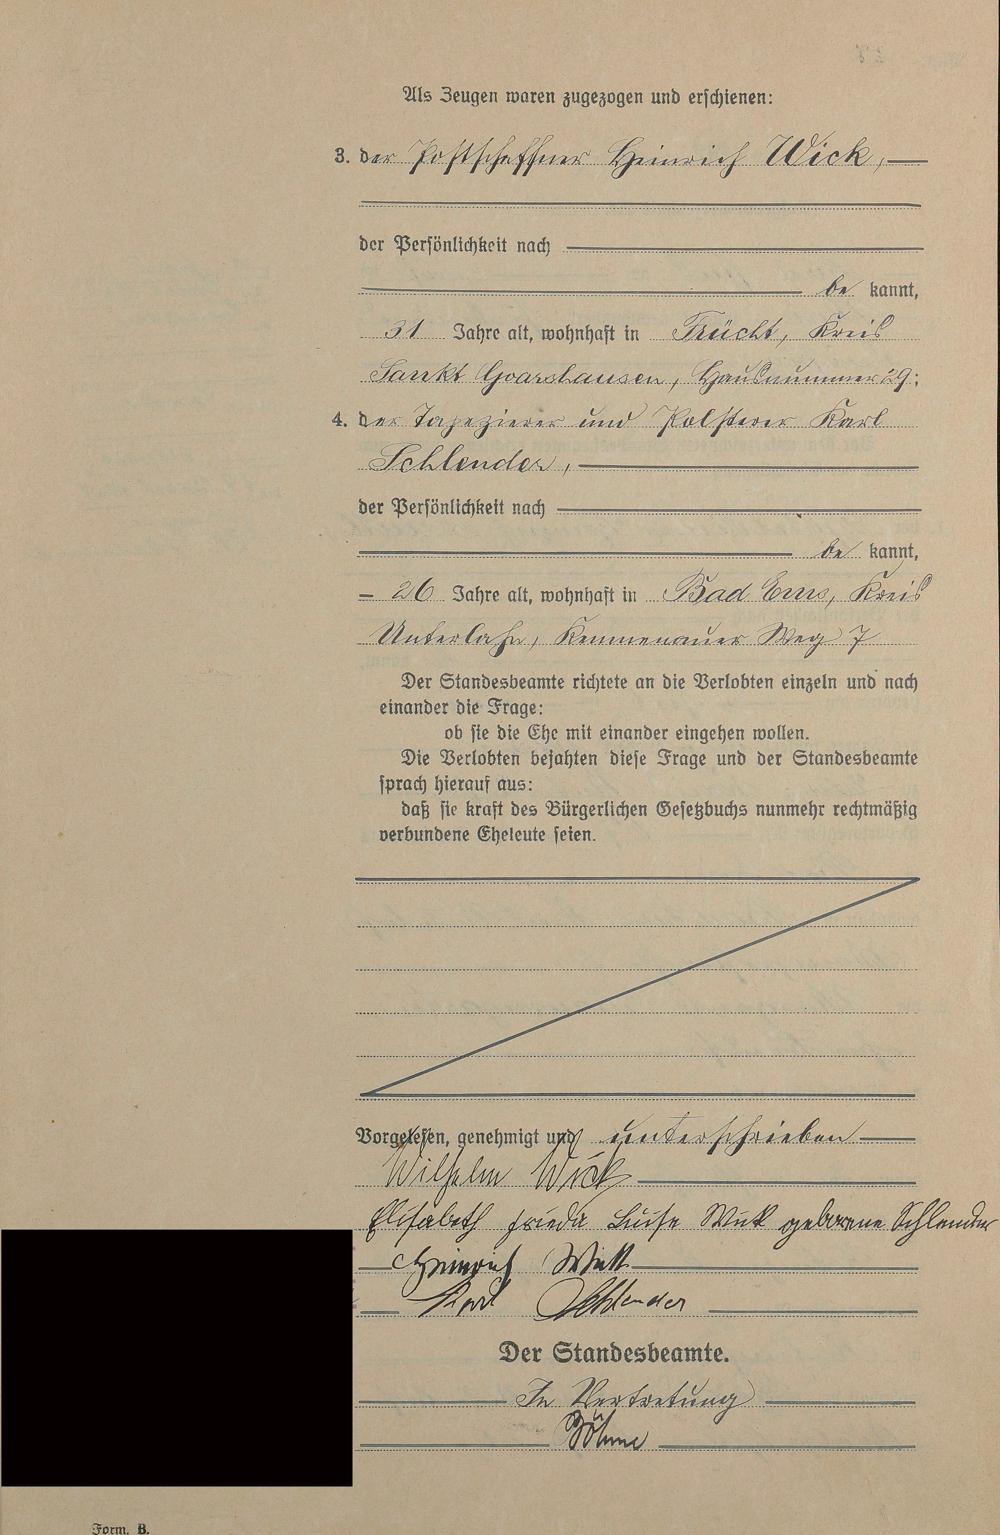 Als Zeugen waren zugezogen und erschienen:
3. der Postschaffner Heinrich Wick,
der Persönlichkeit nach
be kannt,
31 Jahre alt, wohnhaft in Frücht, Kreis
Sankt Goarshausen, Hausnummer 29;
4. der Tapezierer und Polsterer Karl
Schlender,
der Persönlichkeit nach
be kannt,
26 Jahre alt, wohnhaft in Bad Ems, Kreis
Unterlahn, Kemmenauer Weg 7
Der Standesbeamte richtete an die Verlobten einzeln und nach
einander die Frage:
ob sie die Ehe mit einander eingehen wollen.
Die Verlobten bejahten diese Frage und der Standesbeamte
sprach hierauf aus:
daß sie kraft des Bürgerlichen Gesetzbuchs nunmehr rechtmäßig
verbundene Eheleute seien.
Vorgelesen, genehmigt und unterschrieben
Wilhelm Wick
Elisabeth Frieda Luise Wick geborene Schlender
Heinrich Wick
Karl Schlender
Der Standesbeamte.
In Vertretung
Böhme
Form. B.